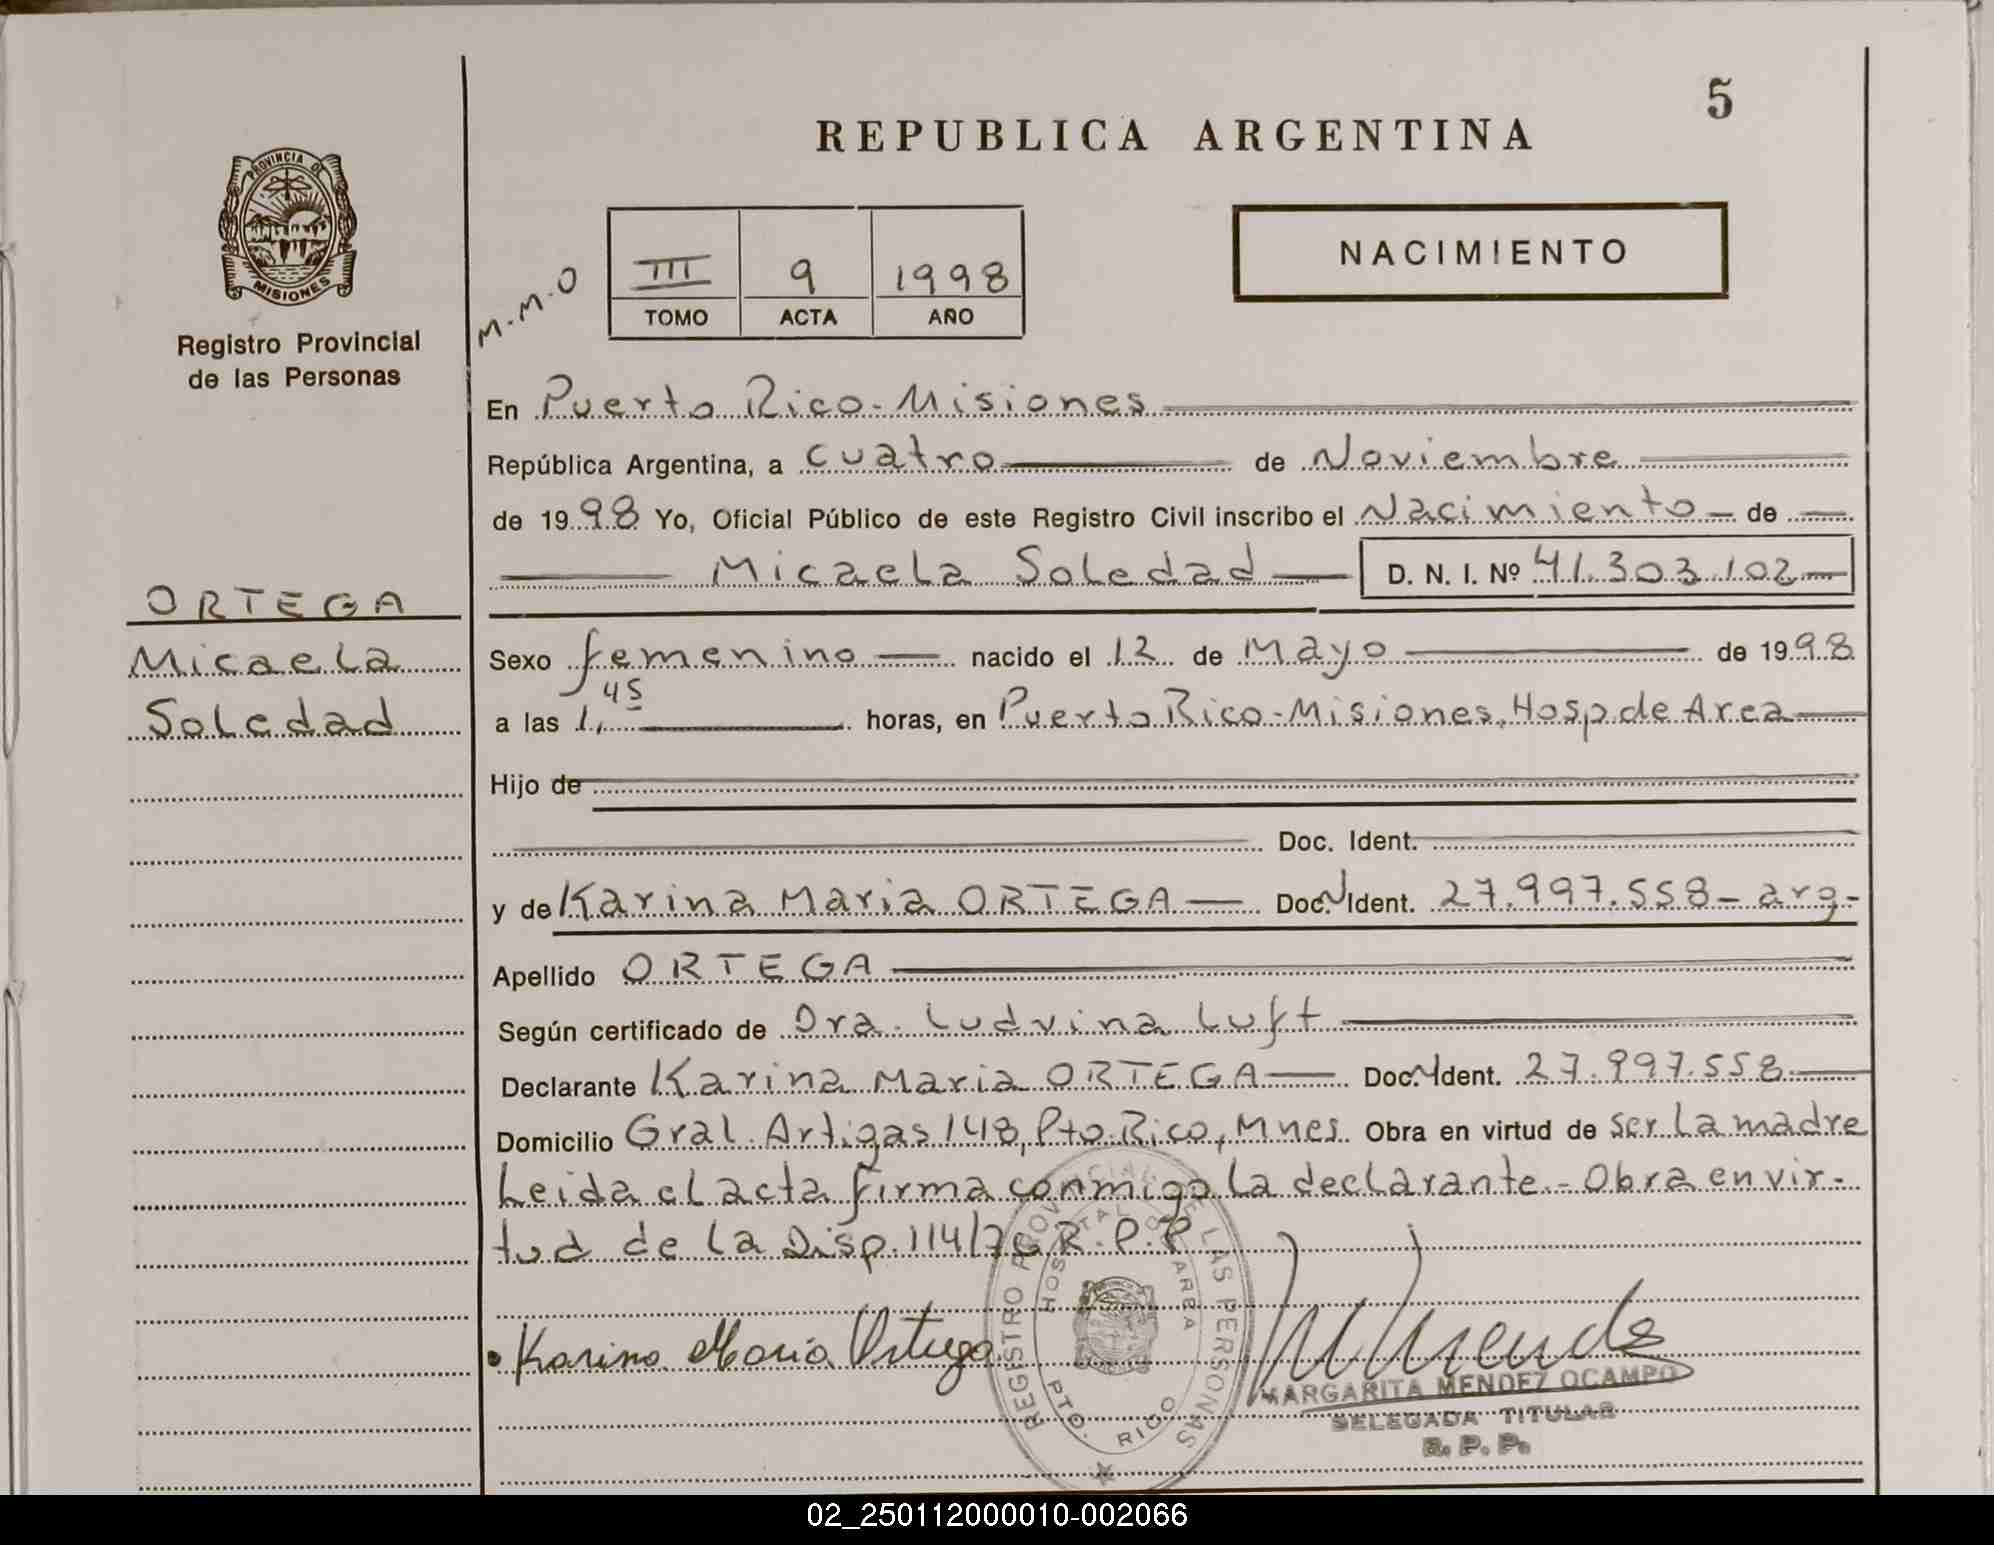 5
REPUBLICA ARGENTINA
PROVINCIA DE
MISIONES
Registro Provincial
de las Personas
M.M.O
III 9 1998
TOMO ACTA AÑO
NACIMIENTO
En Puerto Rico - Misiones
República Argentina, a cuatro de Noviembre
de 1998 Yo, Oficial Público de este Registro Civil inscribo el Nacimiento de
Micaela Soledad D. N. I. Nº 41.303.102
ORTEGA
Micaela
Soledad
Sexo femenino nacido el 12 de Mayo de 1998
a las 1,45 horas, en Puerto Rico - Misiones, Hosp. de Area
Hijo de
Doc. Ident.
y de Karina Maria ORTEGA Doc. N Ident. 27.997.558 - arg -
Apellido ORTEGA
Según certificado de Dra. Ludvina Luft
Declarante Karina Maria ORTEGA Doc. N Ident. 27.997.558
Domicilio Gral. Artigas 148, Pto. Rico, Mnes. Obra en virtud de ser la madre
Leida el acta firma conmigo la declarante - Obra en vir-
tud de la Disp. 114/76 R.P.P.
Karina Maria Ortega
REGISTRO PROVINCIAL DE LAS PERSONAS
HOSPITAL DE AREA
PTO. RICO
MARGARITA MENDEZ OCAMPO
DELEGADA TITULAR
R. P. P.
02_250112000010-002066